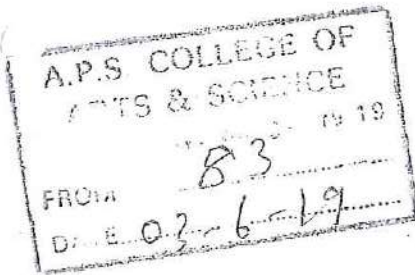 A.P.S. COLLEGE OF
ARTS & SCIENCE
19
FROM 83
DATE 03-6-19